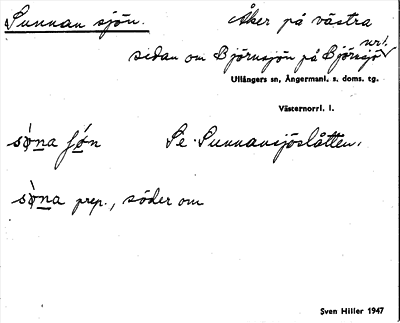 Sunnan sjön. Åker på västra
sidan om Björnsjön på Björnsjö
nr 1.
Ullångers sn, Ångermanl. s. doms. tg.
Västernorrl. l.
sò̱na ʃǿn Se Sunnansjöslåtten.
sò̱na prep., söder om
Sven Hiller 1947